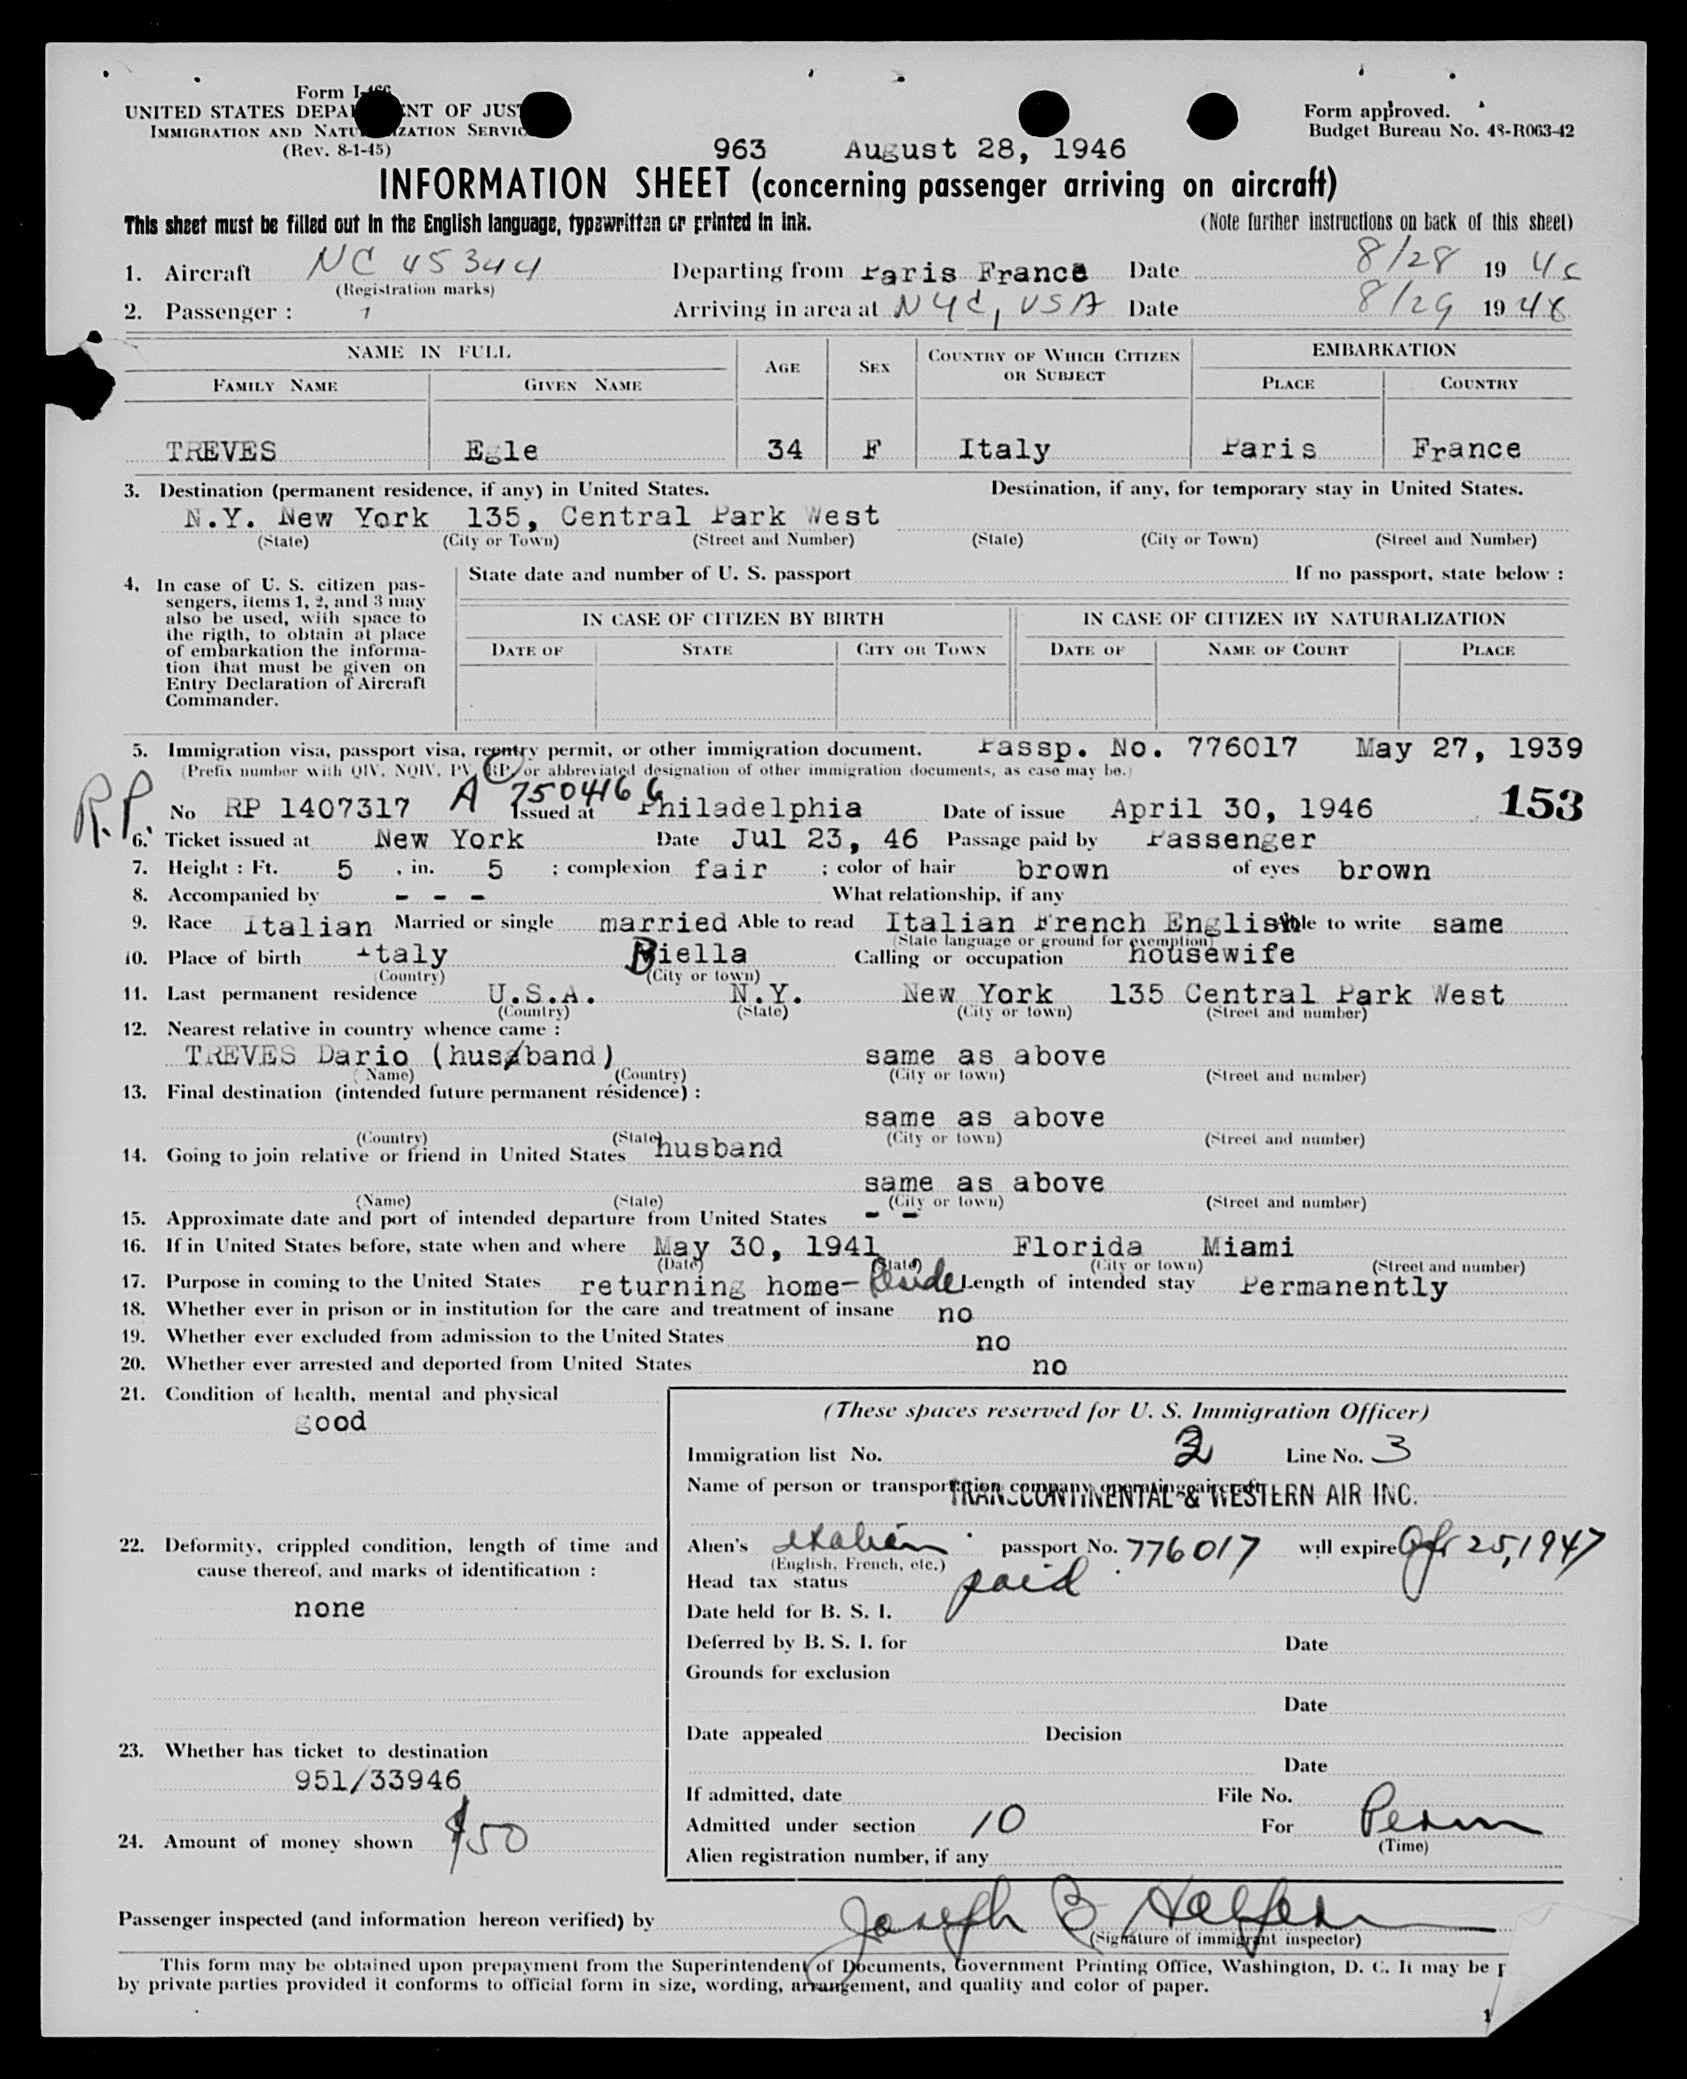 Form I-466
UNITED STATES DEPA NT OF JUS
IMMIGRATION AND NATU IZATION SERVIC
(Rev. 8-1-45)
Form approved.
Budget Bureau No. 43-R063-42
963 August 28, 1946
INFORMATION SHEET (concerning passenger arriving on aircraft)
This sheet must be filled out in the English language, typewritten or printed in ink. (Note further instructions on back of this sheet)
1. Aircraft NC 45344 Departing from Paris France Date 8/28 19 46
(Registration marks)
2. Passenger : 1 Arriving in area at NYC, USA Date 8/29 19 46
NAME IN FULL AGE SEX COUNTRY OF WHICH CITIZEN OR SUBJECT EMBARKATION
FAMILY NAME GIVEN NAME PLACE COUNTRY
TREVES Egle 34 F Italy Paris France
3. Destination (permanent residence, if any) in United States. Destination, if any, for temporary stay in United States.
N.Y. New York 135, Central Park West
(State) (City or Town) (Street and Number) (State) (City or Town) (Street and Number)
4. In case of U. S. citizen pas-
sengers, items 1, 2, and 3 may
also be used, with space to
the rigth, to obtain at place
of embarkation the informa-
tion that must be given on
Entry Declaration of Aircraft
Commander.
State date and number of U. S. passport If no passport, state below :
IN CASE OF CITIZEN BY BIRTH IN CASE OF CITIZEN BY NATURALIZATION
DATE OF STATE CITY OR TOWN DATE OF NAME OF COURT PLACE
5. Immigration visa, passport visa, reentry permit, or other immigration document. Passp. No. 776017 May 27, 1939
(Prefix number with QIV, NQIV, PV, RP, or abbreviated designation of other immigration documents, as case may be.)
R.P. A 7504166
No RP 1407317 Issued at Philadelphia Date of issue April 30, 1946 153
6. Ticket issued at New York Date Jul 23, 46 Passage paid by Passenger
7. Height : Ft. 5 , in. 5 ; complexion fair ; color of hair brown of eyes brown
8. Accompanied by - - - What relationship, if any
9. Race Italian Married or single married Able to read Italian French English Able to write same
(State language or ground for exemption)
10. Place of birth Italy Biella Calling or occupation housewife
(Country) (City or town)
11. Last permanent residence U.S.A. N.Y. New York 135 Central Park West
(Country) (State) (City or town) (Street and number)
12. Nearest relative in country whence came :
TREVES Dario (husband) same as above
(Name) (Country) (City or town) (Street and number)
13. Final destination (intended future permanent résidence) :
same as above
(Country) (State) (City or town) (Street and number)
14. Going to join relative or friend in United States husband
same as above
(Name) (State) (City or town) (Street and number)
15. Approximate date and port of intended departure from United States - -
16. If in United States before, state when and where May 30, 1941 Florida Miami
(Date) (State) (City or town) (Street and number)
17. Purpose in coming to the United States returning home- Reside Length of intended stay Permanently
18. Whether ever in prison or in institution for the care and treatment of insane no
19. Whether ever excluded from admission to the United States no
20. Whether ever arrested and deported from United States no
21. Condition of health, mental and physical
good
22. Deformity, crippled condition, length of time and
cause thereof, and marks of identification :
none
23. Whether has ticket to destination
951/33946
24. Amount of money shown $50
(These spaces reserved for U. S. Immigration Officer)
Immigration list No. 2 Line No. 3
Name of person or transportation company operating aircraft
TRANSCONTINENTAL & WESTERN AIR INC.
Alien's Italian passport No. 776017 will expire Apr 25, 1947
(English, French, etc.)
Head tax status paid
Date held for B. S. I.
Deferred by B. S. I. for Date
Grounds for exclusion
Date
Date appealed Decision
Date
If admitted, date File No.
Admitted under section 10 For Perm
(Time)
Alien registration number, if any
Passenger inspected (and information hereon verified) by Joseph B
(Signature of immigrant inspector)
This form may be obtained upon prepayment from the Superintendent of Documents, Government Printing Office, Washington, D. C. It may be p
by private parties provided it conforms to official form in size, wording, arrangement, and quality and color of paper.
1